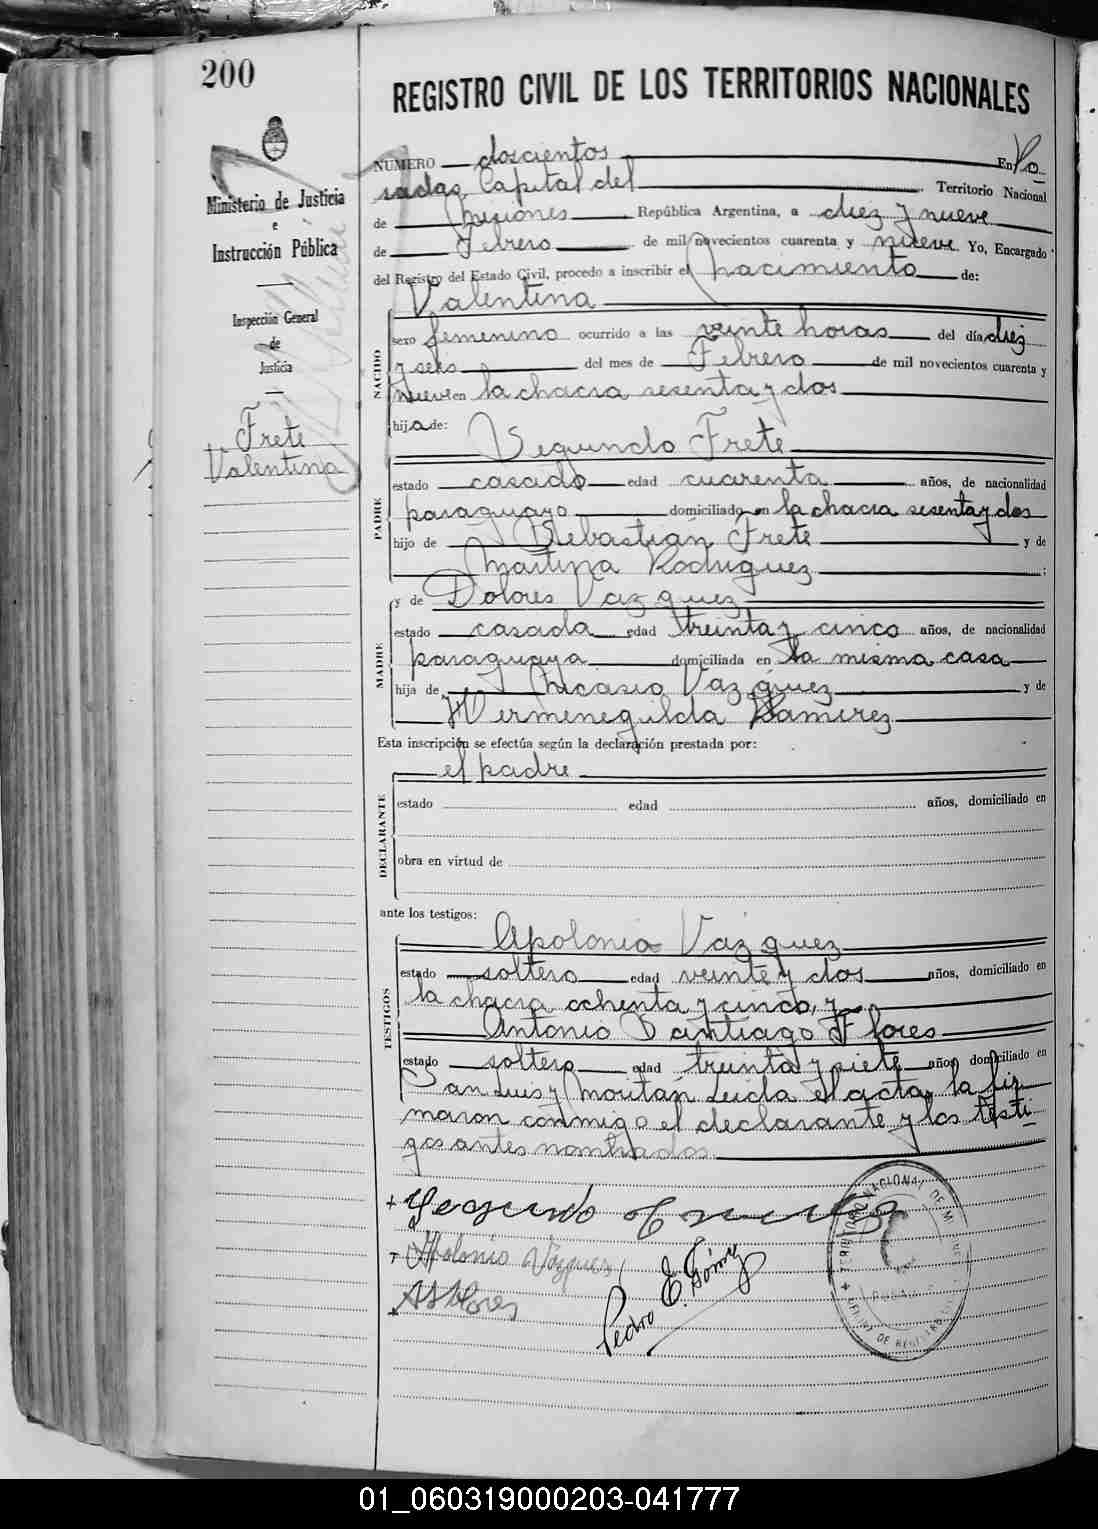 200
REGISTRO CIVIL DE LOS TERRITORIOS NACIONALES
Ministerio de Justicia
e
Instrucción Pública
Inspección General
de
Justicia
Frete
Valentina
NÚMERO doscientos En Po
sadas Capital del Territorio Nacional
de Misiones República Argentina, a diez y nueve
de Febrero de mil novecientos cuarenta y nueve Yo, Encargado
del Registro del Estado Civil, procedo a inscribir el nacimiento de:
Valentina
NACIDO
sexo femenino ocurrido a las veinte horas del día diez
y seis del mes de Febrero de mil novecientos cuarenta y
nueve en la chacra sesenta y dos
hija de:
Segundo Frete
PADRE
estado casado edad cuarenta años, de nacionalidad
paraguayo domiciliado en la chacra sesenta y dos
hijo de Sebastián Frete y de
Martina Rodriguez ;
y de Dolores Vazquez
MADRE
estado casada edad treinta y cinco años, de nacionalidad
paraguaya domiciliada en la misma casa
hija de Nicasio Vazquez y de
Hermenegilda Ramirez
Esta inscripción se efectúa según la declaración prestada por:
el padre
DECLARANTE
estado edad años, domiciliado en
obra en virtud de
ante los testigos:
Apolonio Vazquez
TESTIGOS
estado soltero edad veinte y dos años, domiciliado en
la chacra ochenta y cinco, y
Antonio Santiago Flores
estado soltero edad treinta y siete años, domiciliado en
San Luis y Leida el acta, la fir
maron conmigo el declarante y los testi
gos antes nombrados.
Segundo
Apolonio Vázquez
AS Flores
Pedro E. Gómez
TERRITORIO NACIONAL DE
01_060319000203-041777